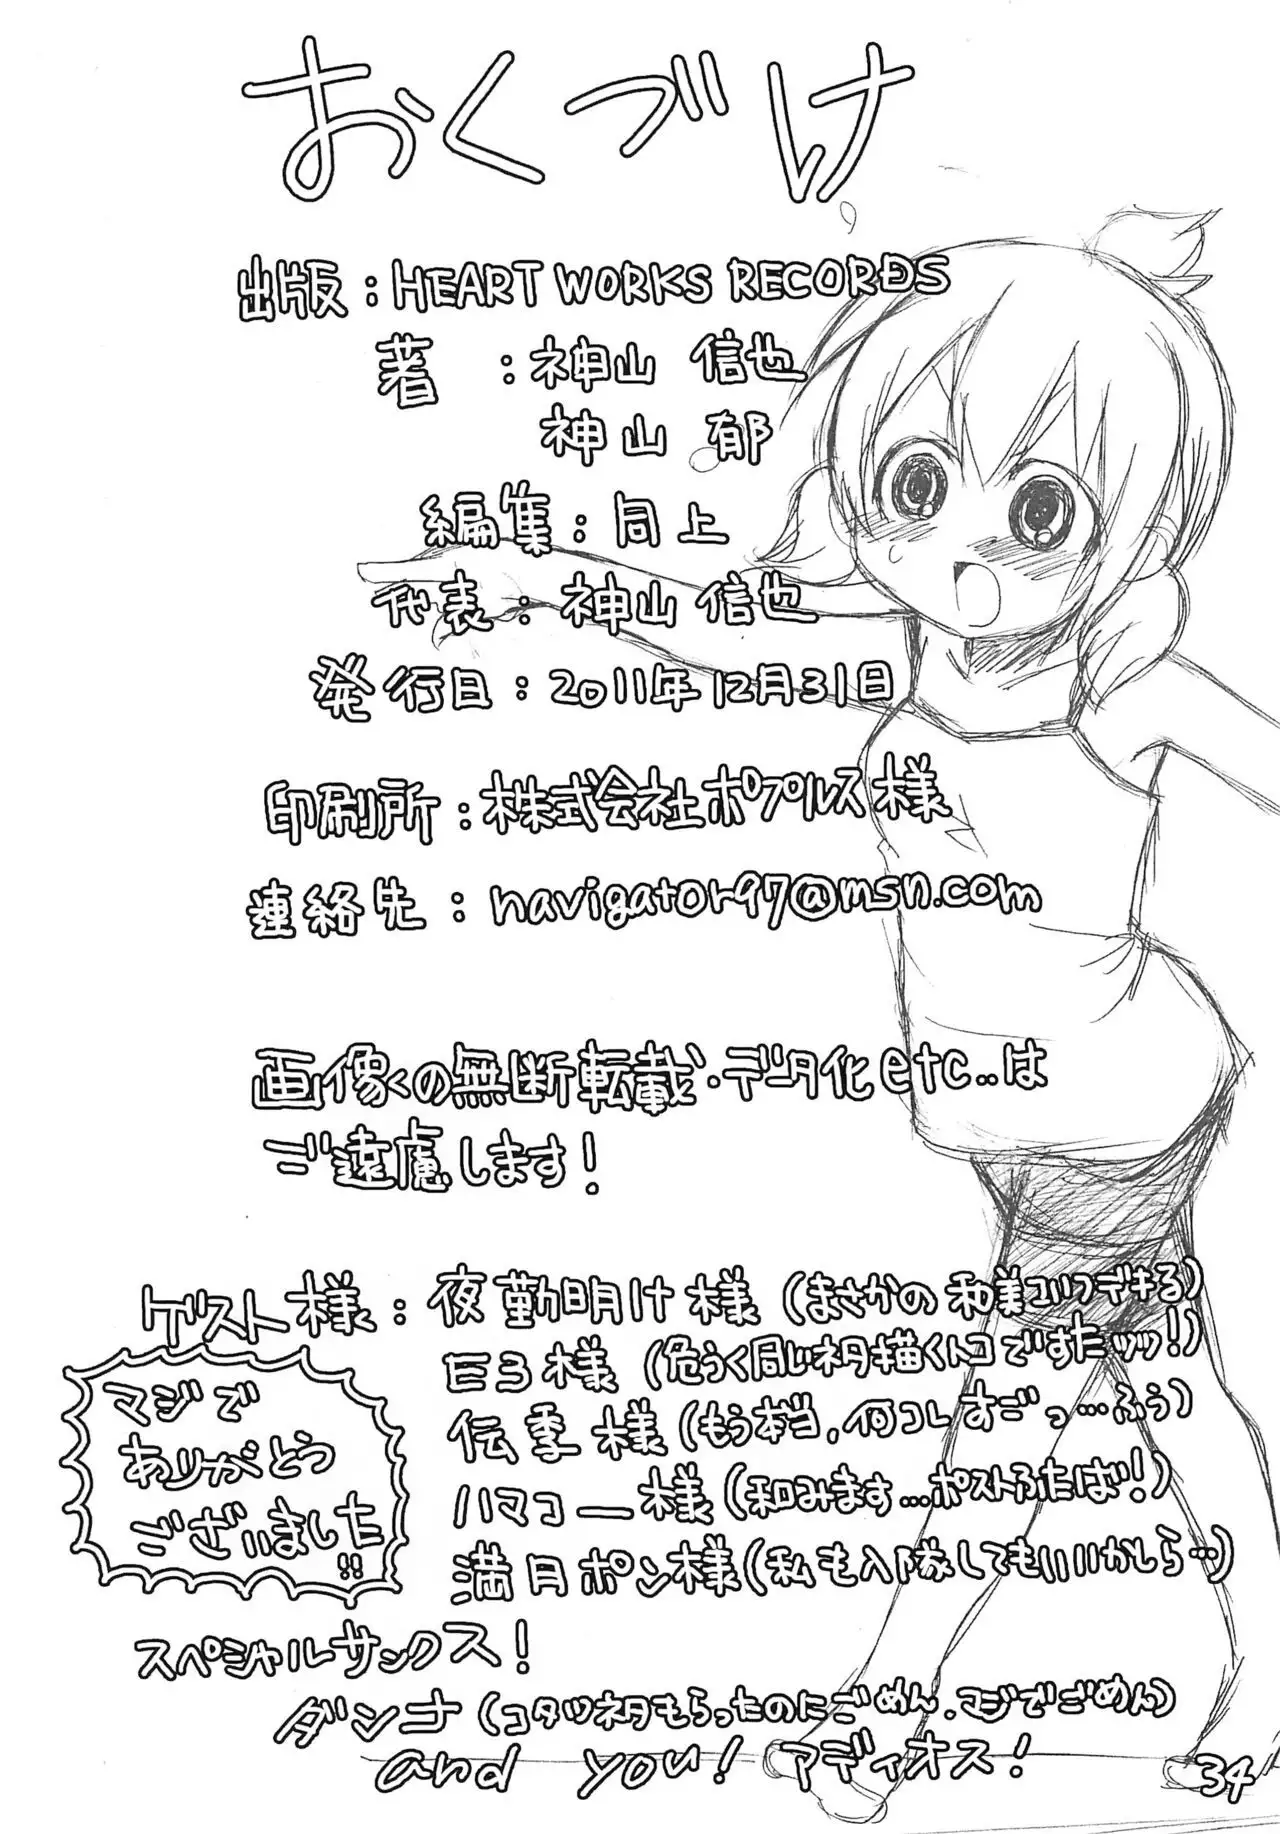 おくづけ
出版：HEART WORKS RECORDS
著：神山 信也
神山 郁
編集：同上
代表：神山 信也
発行日：2011年12月31日
印刷所：株式会社ポプルス様
連絡先：navigator97@msn.com
画像くの無断転載・データ化etc..は
ご遠慮します！
ゲスト様：夜勤明け様（まさかの和美コルフできる）
E3様（危うく同じネタ描くトコですたッッ！）
伝季様（もう本当、何コレすごっ…ふぅ）
ハマコー様（和みます…ポストふたば！）
満月ポン様（私も入隊してもいいかしら…）
マジで
ありがとう
ございました!!
スペシャルサンクス！
ダンナ（コタツネタもらったのにごめん、マジでごめん）
and you! アディオス！
34